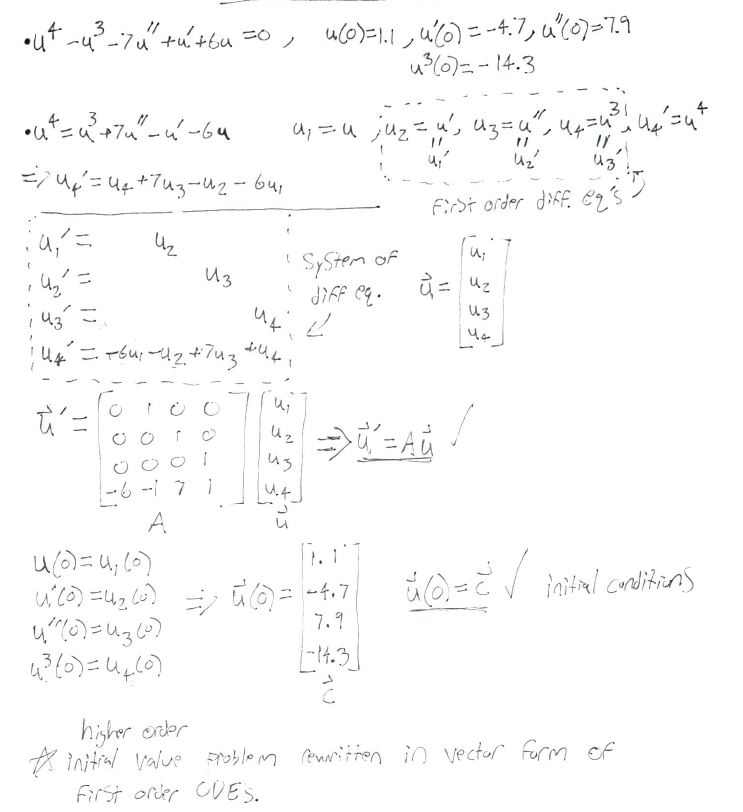 •u⁴-u³-7u''+u'+6u=0, u(0)=1.1, u'(0)=-4.7, u''(0)=7.9
u³(0)=-14.3
•u⁴=u³+7u''-u'-6u u₁=u, u₂=u', u₃=u'', u₄=u³, u₄'=u⁴
u₁' u₂' u₃'
=> u₄'=u₄+7u₃-u₂-6u₁
First order diff. eq's
u₁'= u₂
u₂'= u₃
u₃'= u₄
u₄'=-6u₁-u₂+7u₃+u₄
System of
diff eq.
u⃗= [u₁
u₂
u₃
u₄]
u⃗'= [0 1 0 0
0 0 1 0
0 0 0 1
-6 -1 7 1] [u₁
u₂
u₃
u₄] => u⃗'=Au⃗ ✓
A u⃗
u(0)=u₁(0)
u'(0)=u₂(0)
u''(0)=u₃(0)
u³(0)=u₄(0)
=> u⃗(0)= [1.1
-4.7
7.9
-14.3]
c⃗
u⃗(0)=c⃗ ✓ initial conditions
higher order
☆ initial value problem rewritten in vector form of
first order ODEs.